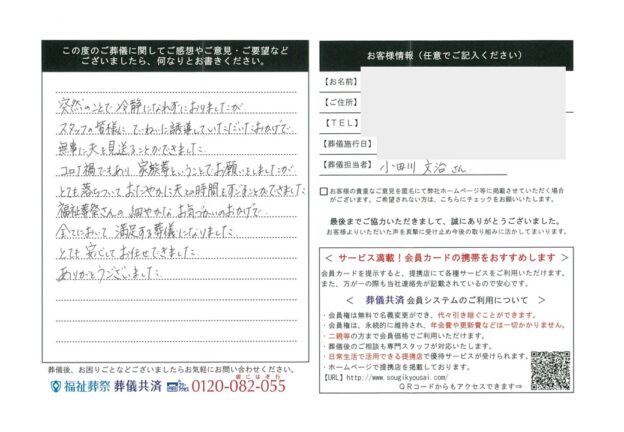 この度のご葬儀に関してご感想やご意見・ご要望など
ございましたら、何なりとお書きください。
突然のことで冷静になれずにおりましたが
スタッフの皆様に、ていねいに誘導していただいたおかげで、
無事に夫を見送ることができました。
コロナ禍でもあり、家族葬ということでお願いをしましたが、
とても落ちついておだやかに夫との時間をすごすことができました
福祉葬祭さんの細やかなお気づかいのおかげで、
全てにおいて満足する葬儀になりました。
とても安心してお任せできました。
ありがとうございました。
葬儀後、お困りごとなどございましたらお気軽にお問い合わせください。
福祉葬祭 葬儀共済 0120-082-055
お客様情報（任意でご記入ください）
【お名前】
【ご住所】
【ＴＥＬ】
【葬儀施行日】
【葬儀担当者】 小田川 文治 さん
お客様の貴重なご意見を匿名にて弊社ホームページ等に掲載させていただく場合
がございます。ご希望されない方は、こちらにチェックをお願いいたします。
最後までご協力いただきまして、誠にありがとうございました。
お客様よりいただいた声を真摯に受け止め今後の取り組みに活かしてまいります。
＜ サービス満載！会員カードの携帯をおすすめします ＞
会員カードを提示すると、提携店にて各種サービスをご利用いただけます。
また、万が一の際も当社連絡先が記載されているので安心です。
＜ 葬儀共済 会員システムのご利用について ＞
・会員権は無料で名義変更ができ、代々引き継ぐことができます。
・会員権は、永続的に維持され、年会費や更新費などは一切かかりません。
・二親等の方まで会員価格でご利用いただけます。
・葬儀後のご相談も専門スタッフが対応いたします。
・日常生活で活用できる提携店で優待サービスが受けられます。
・ホームページで提携店を掲載しております。
【URL】http://www.sougikyousai.com/
ＱＲコードからもアクセスできます⇒